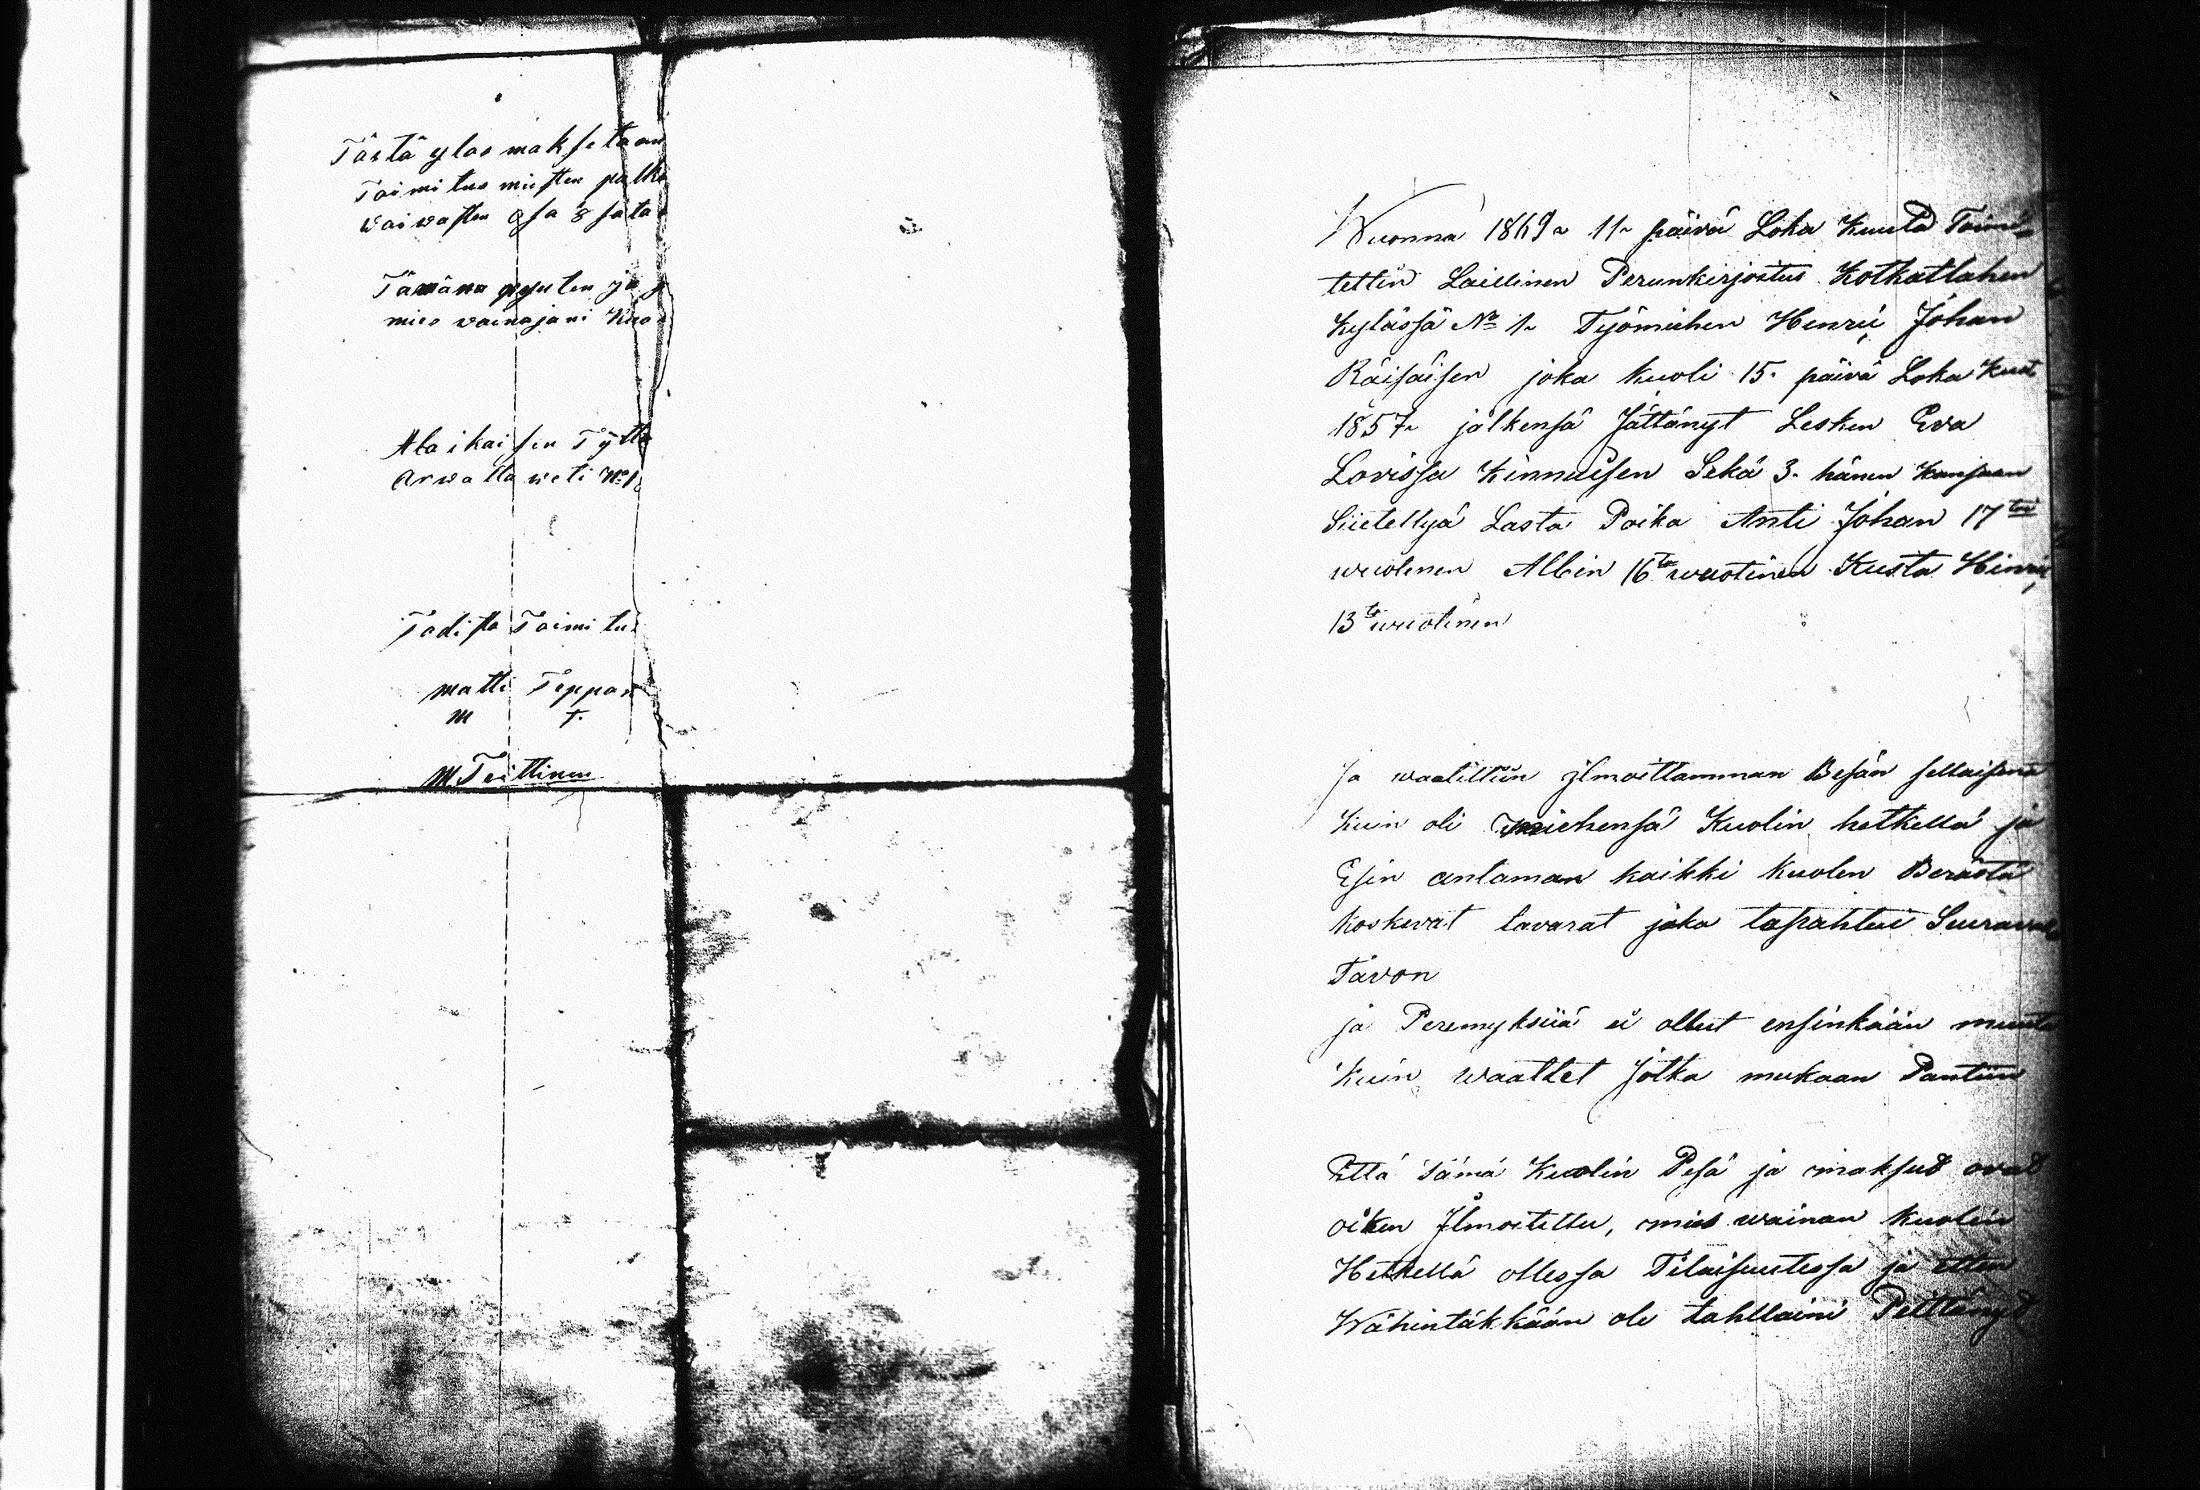 Tästä ylos maksetaan
Toimitus miesten palka
waiwasten osa 8 sata
Tämäna
mies vainajani
Alaikaisen Tytto
Arwatta weti No 1
Todista Toimitus
matti Teppon
M T.
M. Teittinen
Wuonna 1869 11 päivä Loka Kuuta Toimi-
tettin Laillinen Perunkirjoitus Kotkatlahen
Kylässä No 1 Työmiehen Henrii Johan
Räisäisen joka kuoli 15. päivä Loka Kuut
1857 jälkensä Jättänyt Lesken Eva
Lovissa Kinnuisen Sekä 3. hänen Kansaan
Siietellyä Lasta Poika Anti Johan 17 toi
wuotinen Albin 16 to wuotinen Kusta Hinrii
13 to wuotinen
ja waatittiin ilmoittamman Besän sellaisena
Kuin oli miehensä Kuolin hetkellä ja
Esin antaman kaikki Kuolen Berästä
koskevat tavarat joka tapahtui Seuraval
Tavon
ja Peremyksiiä ei ollut ensinkään muuta
Kuin waattet Jotka mukaan Pantiin
Että Tämä Kuolin Pesä ja maksud ovat
oiken Ilmoitettu, mies wainan kuolin
Hetkellä ollessa Tilaisuutessa ja etten
Wähintäkkään ole tahllaini Peittänyt